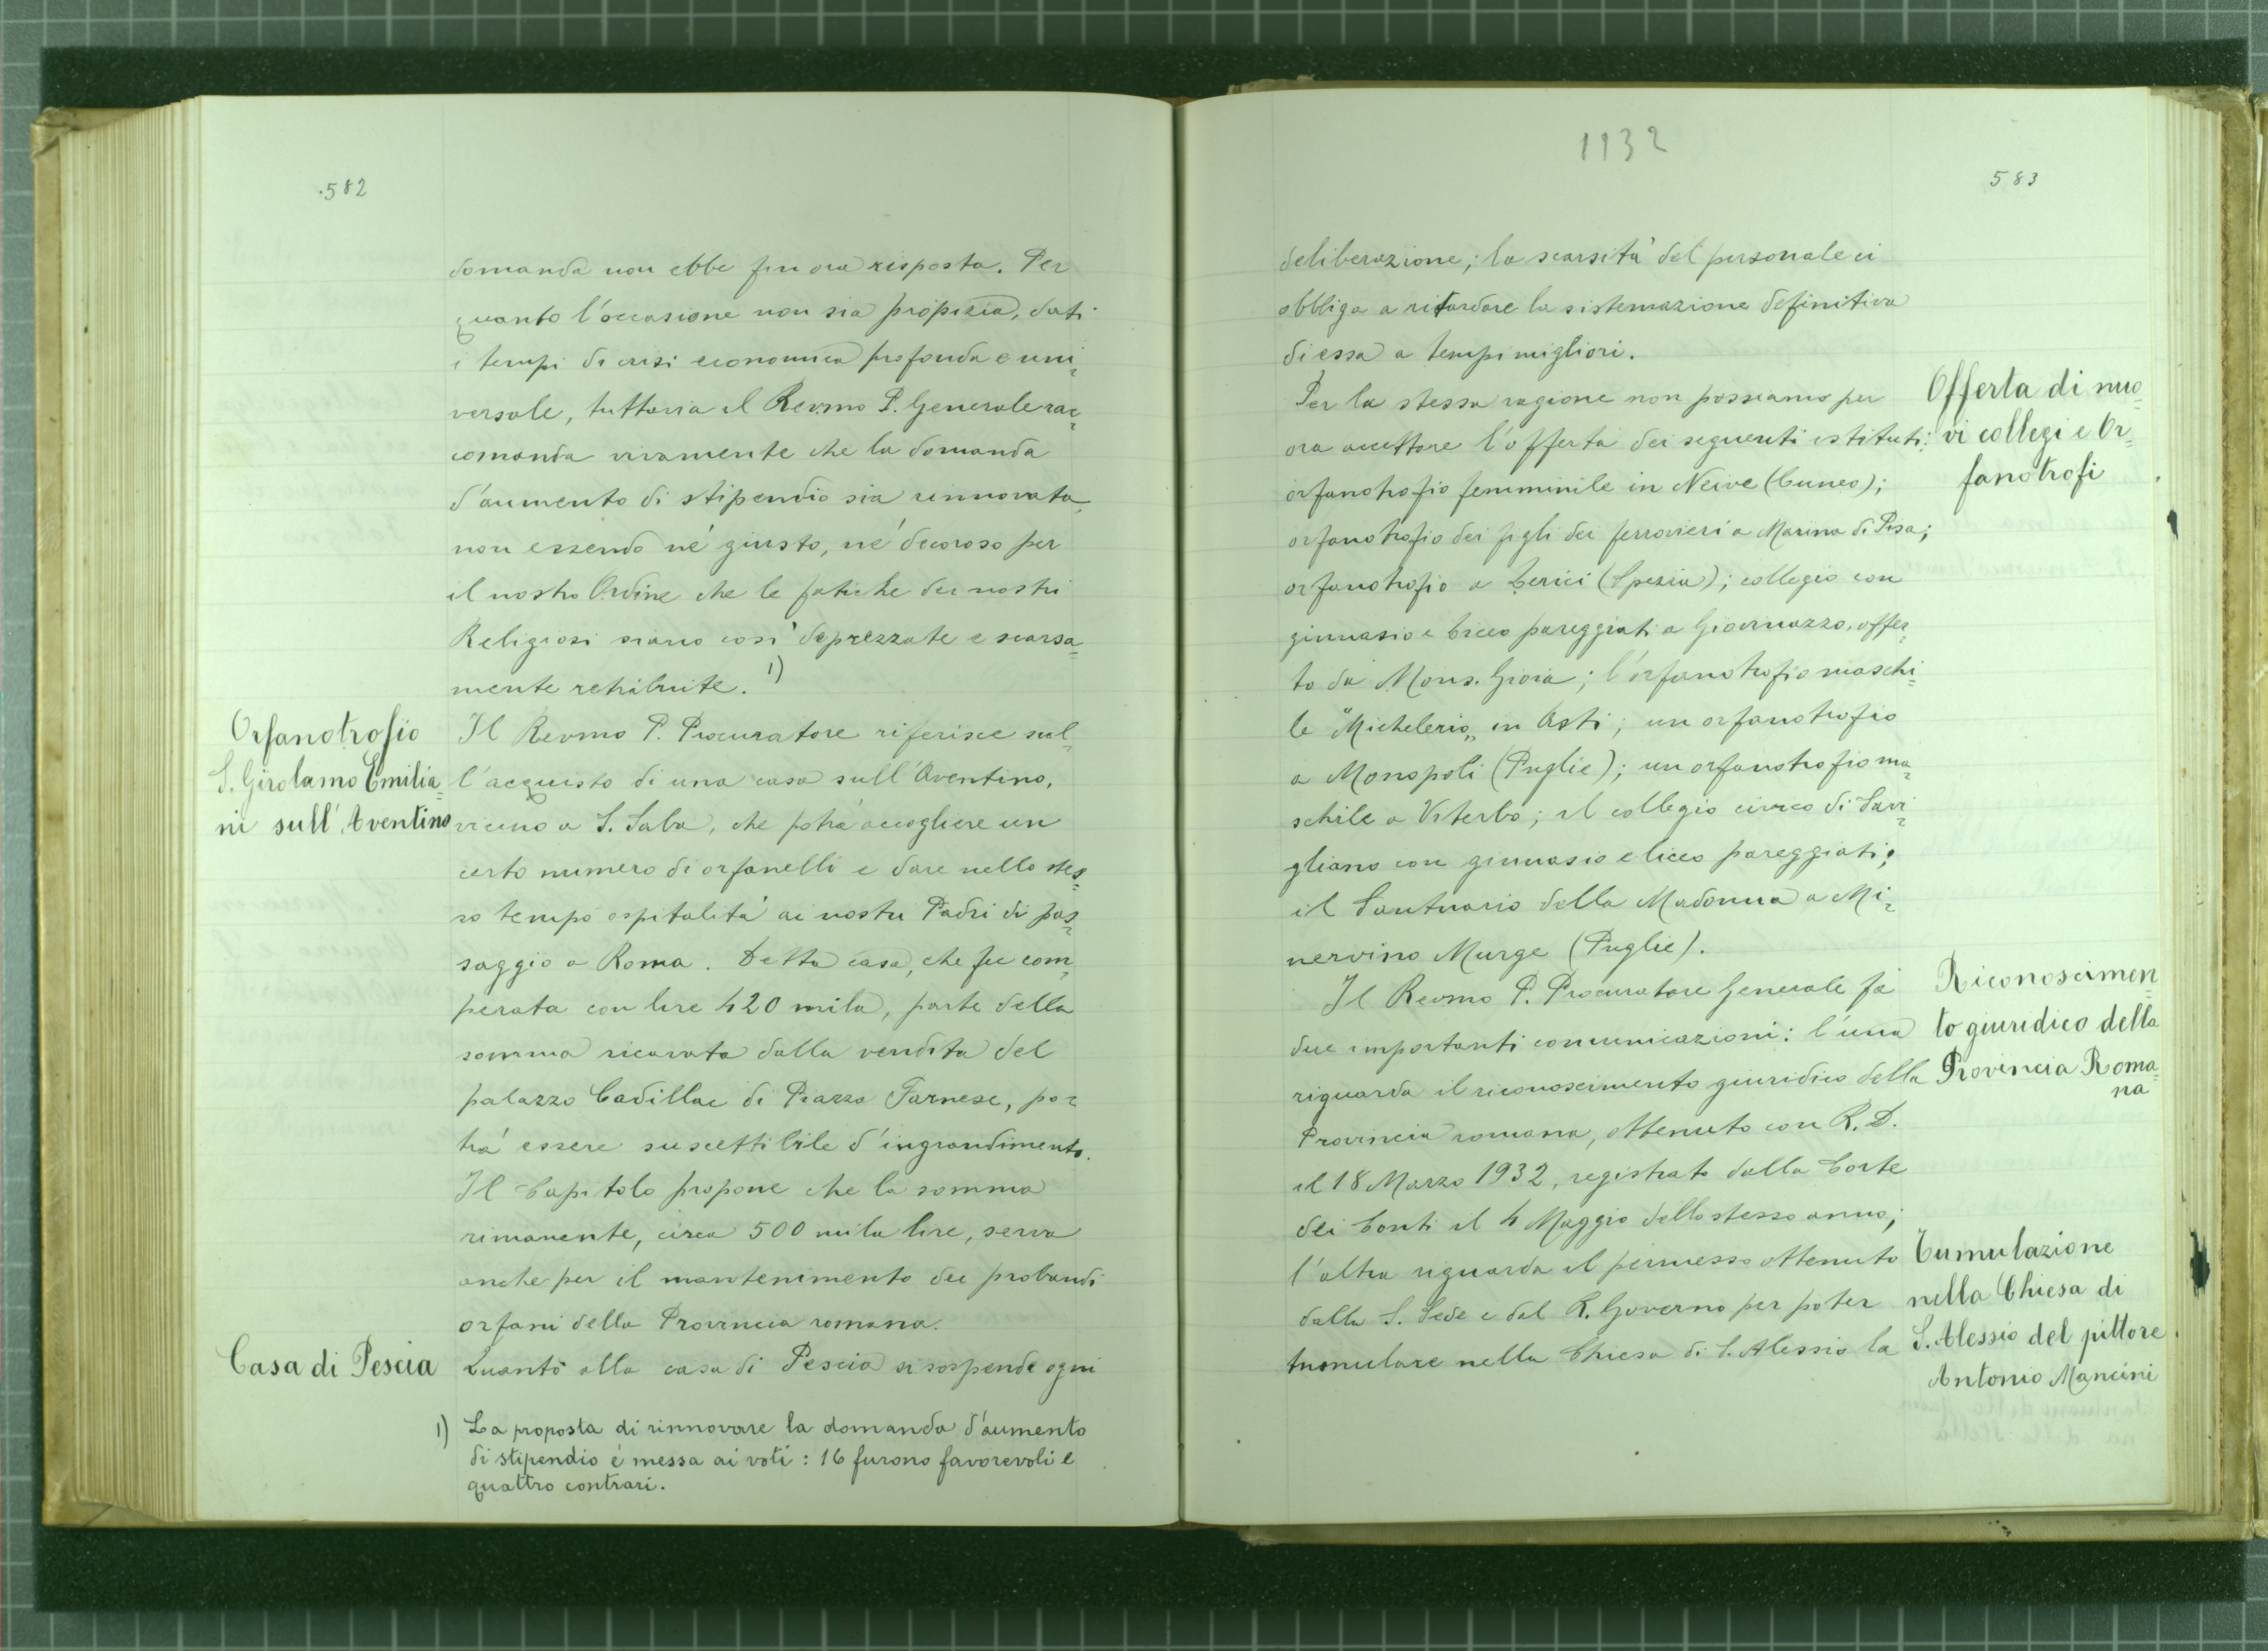 582
domanda non ebbe fin ora risposta. Per
quanto l'occasione non sia propizia, dati
i tempi di crisi economica profonda e uni=
versale, tuttavia il Revmo P. Generale rac=
comanda vivamente che la domanda
d'aumento di stipendio sia rinnovata,
non essendo né giusto, né decoroso per
il nostro Ordine che le fatiche dei nostri
Religiosi siano così deprezzate e scarsa=
mente retribuite. 1)
Orfanotrofio
S. Girolamo Emilia=
ni sull'Aventino
Il Revmo P. Procuratore riferisce sul=
l'acquisto di una casa sull'Aventino,
vicino a S. Saba, che potrà accogliere un
certo numero di orfanelli e dare nello stes=
so tempo ospitalità ai nostri Padri di pas=
saggio a Roma. Detta casa, che fu com=
perata con lire 420 mila, parte della
somma ricavata dalla vendita del
palazzo Cadillac di Piazza Farnese, po=
trà essere suscettibile d'ingrandimento.
Il Capitolo propone che la somma
rimanente, circa 500 mila lire, serva
anche per il mantenimento dei probandi
orfani della Provincia romana.
Casa di Pescia
Quanto alla casa di Pescia si sospende ogni
1) La proposta di rinnovare la domanda d'aumento
di stipendio é messa ai voti: 16 furono favorevoli e
quattro contrari.
1932
583
deliberazione; la scarsità del personale ci
obbliga a ritardare la sistemazione definitiva
di essa a tempi migliori.
Offerta di nuo=
vi collegi e Or=
fanotrofi
Per la stessa ragione non possiamo per
ora accettare l'offerta dei seguenti istituti:
orfanotrofio femminile in Neive (Cuneo);
orfanotrofio dei figli dei ferrovieri a Marina di Pisa;
orfanotrofio a Lerici (Spezia); collegio con
ginnasio e liceo pareggiati a Giovinazzo, offer=
to da Mons. Gioia; l'orfanotrofio maschi=
le "Michelerio„ in Asti; un orfanotrofio
a Monopoli (Puglie); un orfanotrofio ma=
schile a Viterbo; il collegio civico di Savi=
gliano con ginnasio e liceo pareggiati;
il Santuario della Madonna a Mi=
nervino Murge (Puglie).
Riconoscimen=
to giuridico della
Provincia Roma=
na
Il Revmo P. Procuratore Generale fa
due importanti comunicazioni: l'una
riguarda il riconoscimento giuridico della
Provincia romana, ottenuto con R. D.
il 18 Marzo 1932, registrato dalla Corte
dei Conti il 4 Maggio dello stesso anno;
Tumulazione
nella Chiesa di
S. Alessio del pittore
Antonio Mancini
l'altra riguarda il permesso ottenuto
dalla S. Sede e dal R. Governo per poter
tumulare nella Chiesa di S. Alessio la